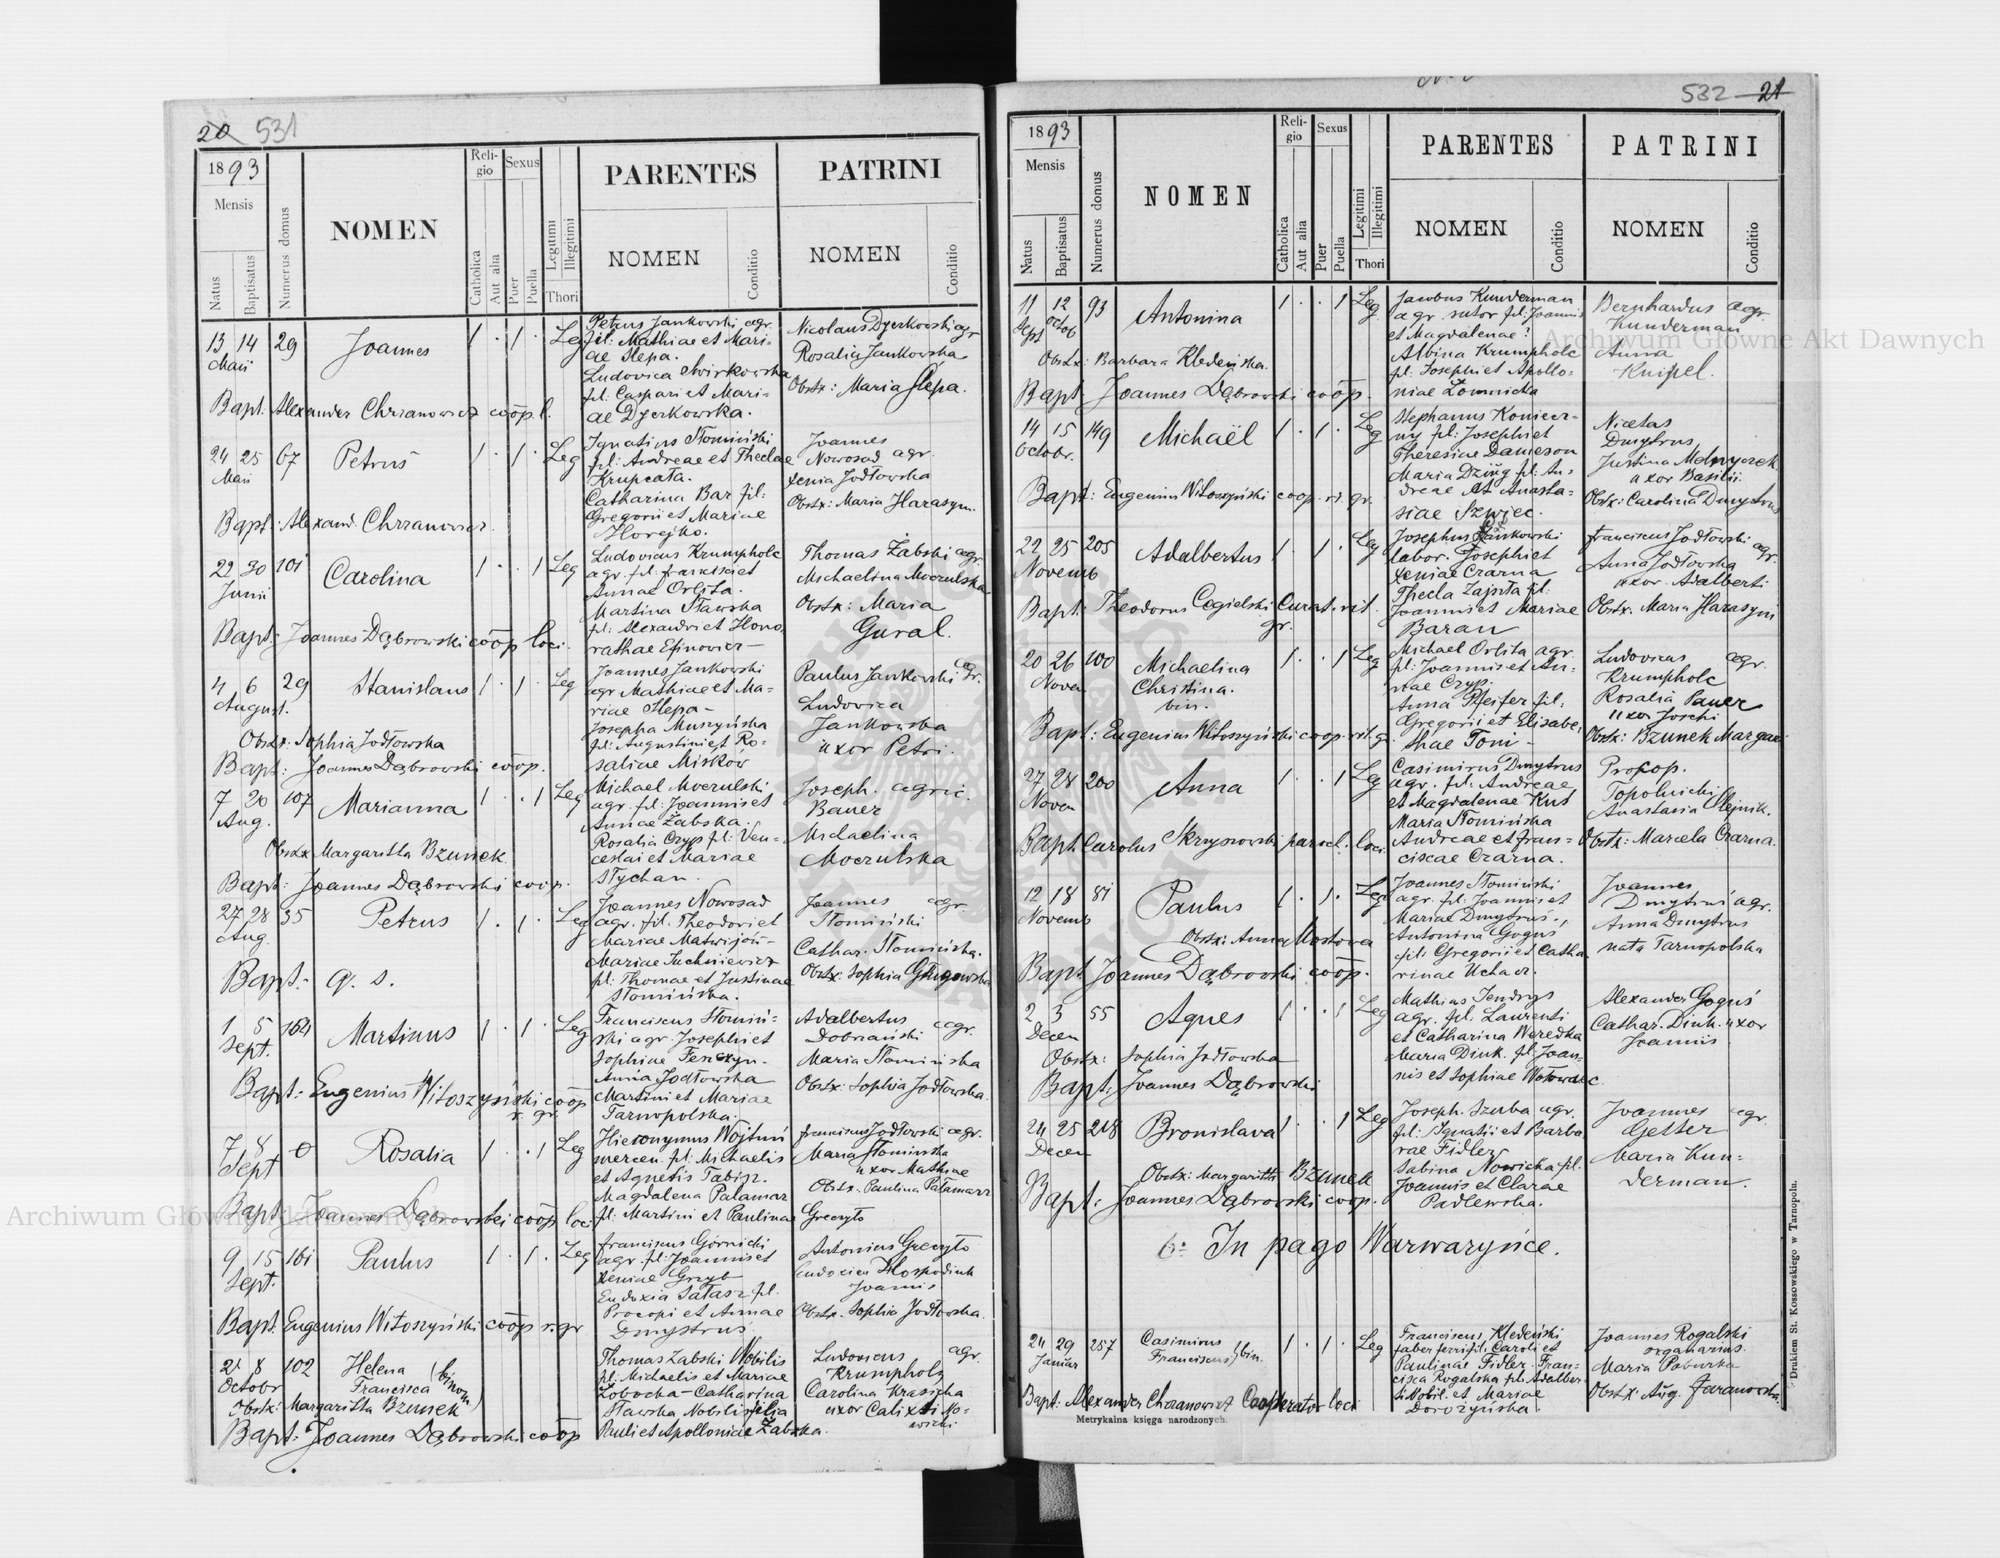 20 531
1893
Mensis
Natus
Baptisatus
Numerus domus
NOMEN
Religio
Catholica
Aut alia
Sexus
Puer
Puella
Legitimi
Illegitimi
Thori
PARENTES
NOMEN
Conditio
PATRINI
NOMEN
Conditio
13 14 29 Joannes 1 · 1 · Leg
Maii
Petrus Jankowski agr.
fil: Mathiae et Mari-
ae Slepa.
Ludovica Swirkowska
fil. Caspari et Mari-
ae Dzerkowska.
Nicolaus Dzerkowski agr
Rosalia Jankowska
Obstx: Maria Slepa.
Bapt: Alexander Chrzanowicz coop. l.
24 25 67 Petrus 1 · 1 · Leg
Maii
Ignatius Słomiński
fil: Andreae et Theclae
Krupcata.
Catharina Bar fil:
Gregorii et Mariae
Horejko.
Joannes
Nowosad agr.
Xenia Jodłowska
Obstx: Maria Harasym.
Bapt: Alexand. Chrzanowicz
29 30 101 Carolina 1 · · 1 Leg
Junii
Ludovicus Krumpholc
agr. fil. Francisci et
Annae Orlita.
Martina Sławska
fil: Alexandri et Hono-
rathae Efinowicz
Thomas Żabski agr.
Michaelina Moczulska
Obstx: Maria
Gural.
Bapt: Joannes Dąbrowski coop loci.
4 6 29 Stanislaus 1 · 1 · Leg
August.
Joannes Jankowski
agr Mathiae et Ma-
riae Slepa
Josepha Muszyńska
fil: Augustini et Ro-
saliae Miskow
Paulus Jankowski agr.
Ludovica
Jankowska
uxor Petri.
Obstx: Sophia Jodłowska
Bapt: Joannes Dąbrowski coop.
7 20 107 Marianna 1 · · 1 Leg
Aug.
Michael Moczulski
agr. fil: Joannis et
Annae Żabska.
Rosalia Czyp fil: Ven-
ceslai et Mariae
Stychan.
Joseph. agric.
Bauer
Michaelina
Moczulska
Obstx Margaritta Bzunek.
Bapt: Joannes Dąbrowski coop.
27 28 35 Petrus 1 · 1 · Leg
Aug.
Joannes Nowosad
agr. fil. Theodori et
Mariae Matwijów
Mariae Juchniewicz
fil: Thomae et Justinae
Słomińska.
Joannes agr.
Słomiński
Cathar. Słomińska.
Obstx: Sophia
Bapt: q. s.
1 5 164 Martinus 1 · 1 · Leg
Sept.
Franciscus Słomiń-
ski agr Josephi et
Sophiae Fenczyn.
Anna Jodłowska
Martini et Mariae
Tarnopolska.
Adalbertus agr.
Dobrzański
Maria Słomińska
Obstx: Sophia Jodłowska.
Bapt: Eugenius Witoszyński coop
r. gr.
7 8 0 Rosalia 1 · · 1 Leg
Sept
Hieronymus Wojtuń
mercen. fil. Michaelis
et Agnetis
Magdalena Palamar
fil: Martini et Paulinae Greczyło
Franciscus Jodłowski agr.
Maria Słomińska
uxor Mathiae
Obstx: Paulina Palamarz
Bapt: Joannes Dąbrowski coop. loci
9 15 161 Paulus 1 · 1 · Leg
Sept.
Franciscus Górnicki
agr. fil: Joannis et
Xeniae Grzyb
Eudoxia Sałasz fil.
Procopi et Annae
Dmytruś
Antonius Greczyło
Eudoxia Hospodiuk
Joannis
Obstx. Sophia Jodłowska.
Bapt: Eugenius Witoszyński coop r. gr
2 8 102 Helena
Octobr Francisca (binom)
Thomas Żabski Nobilis
fil: Michaelis et Mariae
Łobocka - Catharina
Sławska Nobilis filia
Pauli et Apolloniae Żabska.
Ludovicus agr.
Krumpholz
Carolina Krasicka
uxor Calixti No-
wicki
Obstx: Margaritta Bzunek
Bapt: Joannes Dąbrowski coop
532 21
1893
Mensis
Natus
Baptisatus
Numerus domus
NOMEN
Religio
Catholica
Aut alia
Sexus
Puer
Puella
Legitimi
Illegitimi
Thori
PARENTES
NOMEN
Conditio
PATRINI
NOMEN
Conditio
11 12 93 Antonina 1 · · 1 Leg
Sept Octob
Jacobus Kunderman
agr. sutor fil: Joannis
et Magdalenae?
Albina Krumpholc
fil. Josephi et Apollo-
niae Łomnicka
Bernhardus agr.
Kunderman
Anna
Knipel.
Obstx: Barbara Kledeńska.
Bapt: Joannes Dąbrowski coop.
14 15 149 Michaël 1 · 1 · Leg
Octobr.
Stephanus Koniecz-
ny fil: Josephi et
Theresiae Danieson
Maria Dziug fil: An-
dreae et Anasta-
siae Szwiec.
Nicetas
Dmytrus
Justina Melnyczek
uxor Basilii
Obstx: Carolina Dmytrus
Bapt: Eugenius Witoszyński coop. rit. gr.
22 25 205 Adalbertus 1 · 1 · Leg
Novemb
Josephus Jankowski
labor. Josephi et
Xeniae Czarna
Thecla Zajęta fil:
Joannis et Mariae
Baran
Franciscus Jodłowski agr.
Anna Jodłowska
uxor Adalberti
Obstx. Maria Harasym
Bapt: Theodorus Cegielski Curat. rit.
gr.
20 26 100 Michaelina 1 · · 1 Leg
Novem Christina.
bin.
Michael Orlita agr.
fil: Joannis et An-
nae Czyp.
Anna Pfeifer fil:
Gregorii et Elisabe-
thae Toni
Ludovicus agr.
Krumpholc
Rosalia Pauer
uxor Joschi
Obstx: Bzunek Margar
Bapt: Eugenius Witoszyński coop. rit. g.
27 28 200 Anna 1 · · 1 Leg
Novem
Casimirus Dmytrus
agr. fil: Andreae
et Magdalenae Kus
Maria Słomińska
Andreae et Fran-
ciscae Czarna.
Procop.
Topolnicki
Anastasia Olejnik.
Obstx: Marcela Czarna.
Bapt Carolus Skrzyszowski par. loci
12 18 81 Paulus 1 · 1 · Leg
Novemb
Joannes Słomiński
agr. fil. Joannis et
Mariae Dmytruś,
Antonina Goguś
fil: Gregorii et Catha-
rinae Uchacz.
Joannes
Dmytruś agr.
Anna Dmytrus
nata Tarnopolska
Obstx: Anna Mostowa
Bapt Joannes Dąbrowski coop.
2 3 55 Agnes 1 · · 1 Leg
Decem
Mathias Jendrys
agr. fil. Laurenti
et Catharina Weredka
Maria Diuk. fil: Joan-
nis et Sophiae Wołowiec
Alexander Goguś
Cathar. Diuk. uxor
Joannis
Obstx: Sophia Jodłowska
Bapt: Joannes Dąbrowski
24 25 218 Bronislava 1 · · 1 Leg
Decem
Joseph. Szuba agr.
fil: Ignatii et Barba-
rae Fidler
Sabina Nowicka fil.
Joannis et Clarae
Padlewska.
Joannes agr.
Getter
Maria Kun-
derman.
Obstx: Margaritta Bzunek
Bapt: Joannes Dąbrowski coop.
6: In pago Warwaryńce.
24 29 257 Casimirus
Januar Franciscus } bin. 1 · 1 · Leg
Franciscus Kledeński
faber ferri fil: Caroli et
Paulinae Fidler. Fran-
cisca Rogalska fil: Adalber-
ti Nobil. et Mariae
Dorożyńska.
Joannes Rogalski
organarius.
Maria Poburka
Obstx: Aug. Taranowska
Bapt: Alexander Chrzanowicz Cooperator loci
Metrykalna księga narodzonych.
Drukiem St. Kossowskiego w Tarnopolu.
Archiwum Główne Akt Dawnych
Archiwum Główne Akt Dawnych